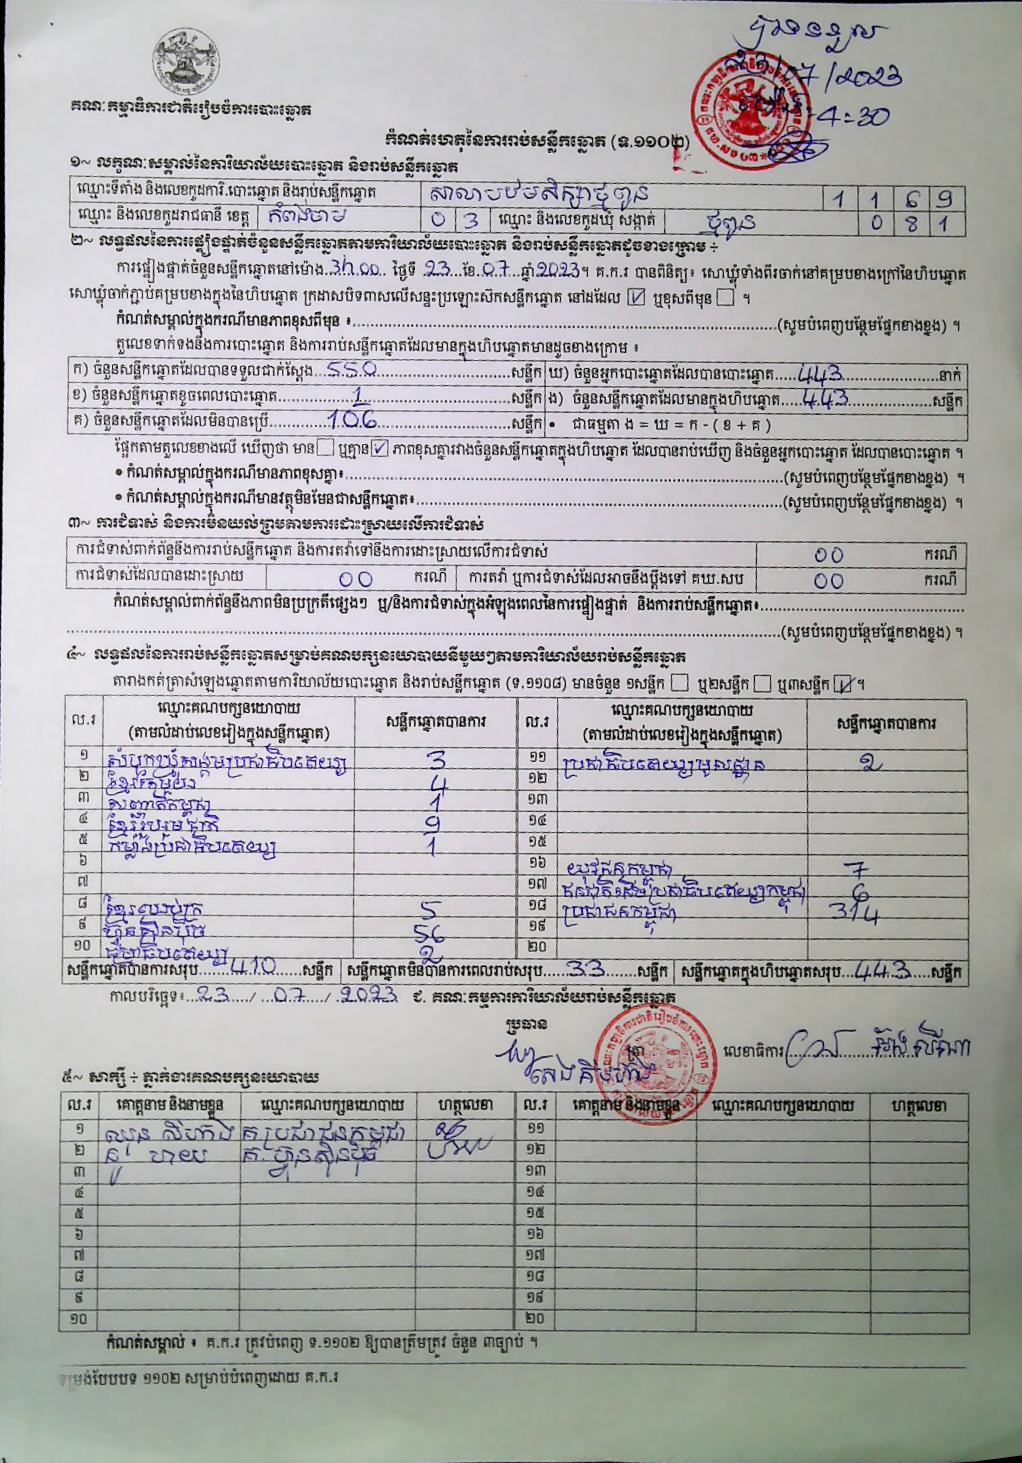 បានទទួល
23/07/2023
4:30
គណៈកម្មាធិការជាតិរៀបចំការបោះឆ្នោត
កំណត់ហេតុនៃការរាប់សន្លឹកឆ្នោត (ទ.១១០២)
១~ លក្ខណៈសម្គាល់នៃការិយាល័យបោះឆ្នោត និងរាប់សន្លឹកឆ្នោត
ឈ្មោះទីតាំង និងលេខកូដការិ.បោះឆ្នោត និងរាប់សន្លឹកឆ្នោត សាលាបឋមសិក្សាថ្មពូន 1 1 6 9
ឈ្មោះ និងលេខកូដរាជធានី ខេត្ត កំពង់ចាម 0 3 ឈ្មោះ និងលេខកូដឃុំ សង្កាត់ ថ្មពូន 0 8 1
២~ លទ្ធផលនៃការផ្ទៀងផ្ទាត់ចំនួនសន្លឹកឆ្នោតតាមការិយាល័យបោះឆ្នោត និងរាប់សន្លឹកឆ្នោតដូចខាងក្រោម ÷
ការផ្ទៀងផ្ទាត់ចំនួនសន្លឹកឆ្នោតនៅម៉ោង 3h00 ថ្ងៃទី 23 ខែ 07 ឆ្នាំ 2023។ គ.ក.រ បានពិនិត្យ៖ សោឃ្លុំទាំងពីរចាក់នៅគម្របខាងក្រៅនៃហិបឆ្នោត
សោឃ្លុំចាក់ភ្ជាប់គម្របខាងក្នុងនៃហិបឆ្នោត ក្រដាសបិទពាសលើសន្ទះប្រឡោះស៊កសន្លឹកឆ្នោត នៅដដែល ☑ ឬខុសពីមុន ☐ ។
កំណត់សម្គាល់ក្នុងករណីមានភាពខុសពីមុន ៖ (សូមបំពេញបន្ថែមផ្នែកខាងខ្នង) ។
តួលេខទាក់ទងនឹងការបោះឆ្នោត និងការរាប់សន្លឹកឆ្នោតដែលមានក្នុងហិបឆ្នោតមានដូចខាងក្រោម ៖
ក) ចំនួនសន្លឹកឆ្នោតដែលបានទទួលជាក់ស្តែង 550 សន្លឹក ឃ) ចំនួនអ្នកបោះឆ្នោតដែលបានបោះឆ្នោត 443 នាក់
ខ) ចំនួនសន្លឹកឆ្នោតខូចពេលបោះឆ្នោត 1 សន្លឹក ង) ចំនួនសន្លឹកឆ្នោតដែលមានក្នុងហិបឆ្នោត 443 សន្លឹក
គ) ចំនួនសន្លឹកឆ្នោតដែលមិនបានប្រើ 106 សន្លឹក • ជាធម្មតា ង = ឃ = ក - ( ខ + គ )
ផ្អែកតាមតួលេខខាងលើ ឃើញថា មាន ☐ ឬគ្មាន ☑ ភាពខុសគ្នារវាងចំនួនសន្លឹកឆ្នោតក្នុងហិបឆ្នោត ដែលបានរាប់ឃើញ និងចំនួនអ្នកបោះឆ្នោត ដែលបានបោះឆ្នោត ។
• កំណត់សម្គាល់ក្នុងករណីមានភាពខុសគ្នា៖ (សូមបំពេញបន្ថែមផ្នែកខាងខ្នង) ។
• កំណត់សម្គាល់ក្នុងករណីមានវត្ថុមិនមែនជាសន្លឹកឆ្នោត៖ (សូមបំពេញបន្ថែមផ្នែកខាងខ្នង) ។
៣~ ការជំទាស់ និងការមិនយល់ព្រមតាមការដោះស្រាយលើការជំទាស់
ការជំទាស់ពាក់ព័ន្ធនឹងការរាប់សន្លឹកឆ្នោត និងការតវ៉ាទៅនឹងការដោះស្រាយលើការជំទាស់ 00 ករណី
ការជំទាស់ដែលបានដោះស្រាយ 00 ករណី ការតវ៉ា ឬការជំទាស់ដែលអាចនឹងប្តឹងទៅ គឃ.សប 00 ករណី
កំណត់សម្គាល់ពាក់ព័ន្ធនឹងភាពមិនប្រក្រតីផ្សេងៗ ឬ/និងការជំទាស់ក្នុងអំឡុងពេលនៃការផ្ទៀងផ្ទាត់ និងការរាប់សន្លឹកឆ្នោត៖
(សូមបំពេញបន្ថែមផ្នែកខាងខ្នង) ។
៤~ លទ្ធផលនៃការរាប់សន្លឹកឆ្នោតសម្រាប់គណបក្សនយោបាយនីមួយៗតាមការិយាល័យរាប់សន្លឹកឆ្នោត
តារាងកត់ត្រាសំឡេងឆ្នោតតាមការិយាល័យបោះឆ្នោត និងរាប់សន្លឹកឆ្នោត (ទ.១១០៨) មានចំនួន ១សន្លឹក ☐ ឬ២សន្លឹក ☐ ឬ៣សន្លឹក ☑ ។
ល.រ ឈ្មោះគណបក្សនយោបាយ (តាមលំដាប់លេខរៀងក្នុងសន្លឹកឆ្នោត) សន្លឹកឆ្នោតបានការ ល.រ ឈ្មោះគណបក្សនយោបាយ (តាមលំដាប់លេខរៀងក្នុងសន្លឹកឆ្នោត) សន្លឹកឆ្នោតបានការ
១ សំបុកឃ្មុំសង្គមប្រជាធិបតេយ្យ 3 ១១ ប្រជាធិបតេយ្យមូលដ្ឋាន 2
២ ខ្មែរតែមួយ 4 ១២
៣ សញ្ជាតិកម្ពុជា 1 ១៣
៤ ខ្មែររួបរួមជាតិ 9 ១៤
៥ កម្លាំងប្រជាធិបតេយ្យ 1 ១៥
៦ ១៦ យុវជនកម្ពុជា 7
៧ ១៧ ជនជាតិដើមប្រជាធិបតេយ្យកម្ពុជា 6
៨ ខ្មែរឈប់ក្រ 5 ១៨ ប្រជាជនកម្ពុជា 314
៩ ហ្វ៊ុនស៊ិនប៉ិច 56 ១៩
១០ ធម្មាធិបតេយ្យ 2 ២០
សន្លឹកឆ្នោតបានការសរុប 410 សន្លឹក សន្លឹកឆ្នោតមិនបានការពេលរាប់សរុប 33 សន្លឹក សន្លឹកឆ្នោតក្នុងហិបឆ្នោតសរុប 443 សន្លឹក
កាលបរិច្ឆេទ៖ 23 / 07 / 2023 ជ. គណៈកម្មការការិយាល័យរាប់សន្លឹកឆ្នោត
ប្រធាន
ត្រា លេខាធិការ អ៊ាង លីណា
សេង គីមហាំង
៥~ សាក្សី ÷ ភ្នាក់ងារគណបក្សនយោបាយ
ល.រ គោត្តនាម និងនាមខ្លួន ឈ្មោះគណបក្សនយោបាយ ហត្ថលេខា ល.រ គោត្តនាម និងនាមខ្លួន ឈ្មោះគណបក្សនយោបាយ ហត្ថលេខា
១ ឈុន សីហាង គ.ប្រជាជនកម្ពុជា ១១
២ នូ ហាយ គ.ហ្វ៊ុនស៊ិនប៉ិច ១២
៣ ១៣
៤ ១៤
៥ ១៥
៦ ១៦
៧ ១៧
៨ ១៨
៩ ១៩
១០ ២០
កំណត់សម្គាល់ ៖ គ.ក.រ ត្រូវបំពេញ ទ.១១០២ ឱ្យបានត្រឹមត្រូវ ចំនួន ៣ច្បាប់ ។
ទម្រង់បែបបទ ១១០២ សម្រាប់បំពេញដោយ គ.ក.រ